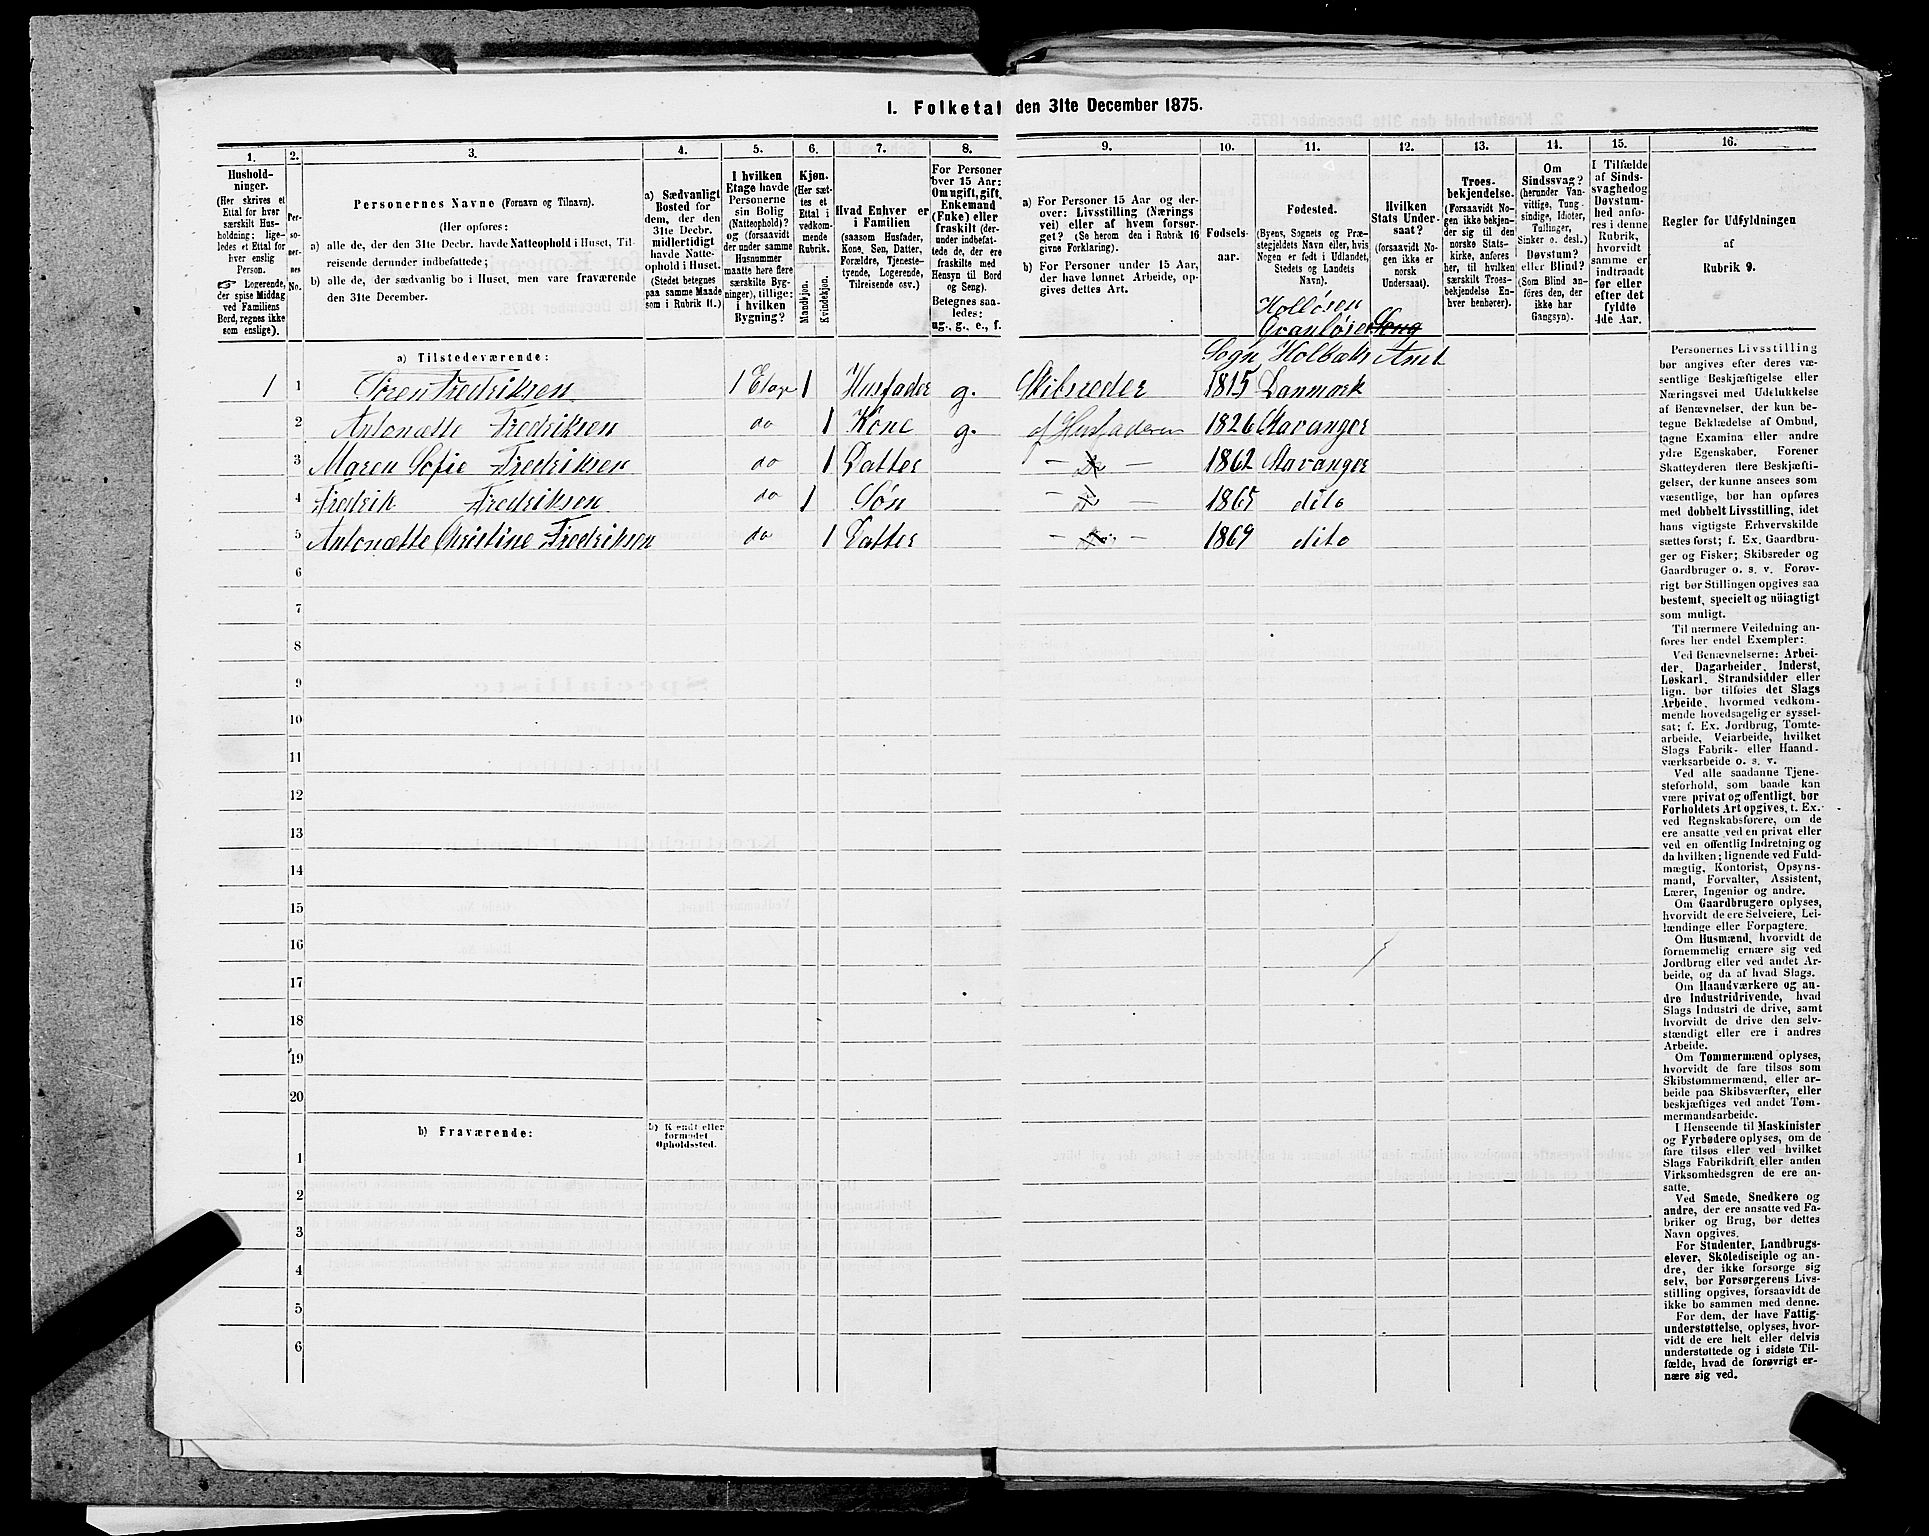 I. Folketal den 31te December 1875.
1. 2. 3. 4. 5. 6. 7. 8. 9. 10. 11. 12. 13. 14. 15. 16.
Hushold-
ninger.
(Her skrives et
Ettal for hver
særskilt Hus-
holdning; lige-
ledes et Ettal for
hver enslig
Person.
☞ Logerende,
der spise Middag
ved Familiens
Bord, regnes ikke
som enslige).
Per-
so-
ner-
nes
No.
Personernes Navne (Fornavn og Tilnavn).
(Her opføres:
a) alle de, der den 31te Decbr. havde Natteophold i Huset, Til-
reisende derunder indbefattede;
b) alle de, der sædvanlig bo i Huset, men vare fraværende
den 31te December.
a) Sædvanligt
Bosted for
dem, der den
31te Decbr.
midlertidigt
havde Natte-
ophold i Huset.
(Stedet betegnes
paa samme Maade
som i Rubrik 11.)
I hvilken
Etage havde
Personerne
sin Bolig
(Natteophold)?
og (forsaavidt
der under samme
Husnummer
maatte høre flere
særskilte Byg-
ninger), tillige:
i hvilken
Bygning?
Kjøn.
(Her sæt-
tes et
Ettal i
vedkom-
mende
Rubrik.
Mandkjøn.
Kvindekjøn.)
Hvad Enhver er
i Familien
(saasom Husfader,
Kone, Søn, Datter,
Forældre, Tjeneste-
tyende, Logerende,
Tilreisende osv.)
For Personer
over 15 Aar:
Om ugift, gift,
Enkemand
(Enke) eller
fraskilt (der-
under indbefat-
tede de, der ere
fraskilte med
Hensyn til Bord
og Seng).
Betegnes saa-
ledes:
ug., g., e., f.
a) For Personer 15 Aar og der-
over: Livsstilling (Nærings-
vei) eller af hvem forsør-
get? (Se herom den i Rubrik 16
givne Forklaring).
b) For Personer under 15 Aar,
der have lønnet Arbeide, op-
gives dettes Art.
Fødsels-
aar.
Fødested.
(Byens, Sognets og Præ-
stegjeldets Navn eller, hvis
Nogen er født i Udlandet,
Stedets og Landets
Navn).
Hvilken
Stats Under-
saat?
(forsaavidt No-
gen ikke er
norsk
Undersaat).
Troes-
bekjendelse.
(Forsaavidt No-
gen ikke bekjen-
der sig til den
norske Stats-
kirke, anføres
her, til hvilken
særskilt Troes-
bekjendelse En-
hver henhører).
Om
Sindssvag?
(herunder Van-
vittige, Tung-
sindige, Idioter,
Tullinger,
Sinker o. desl.)
Døvstum?
eller Blind?
(Som Blind an-
føres den, der
ikke har
Gangsyn).
I Tilfælde
af Sinds-
svaghed og
Døvstum-
hed anfø-
res i denne
Rubrik,
hvorvidt
samme er
indtraadt
før eller
efter det
fyldte
4de Aar.
Regler for Udfyldningen
af
Rubrik 9.
Granløse
Sogn Holbæk Amt
a) Tilstedeværende:
1 1 Søren Fredriksen 1 Etage 1 Husfader g. Skibsreder 1815 Danmark
2 Antonætte Fredriksen do 1 Kone g. af Husfaderen 1826 Stavanger
3 Maren Sofie Fredriksen do 1 Datter – – 1862 Stavanger
4 Fredrik Fredriksen do 1 Søn – – 1865 dito
5 Antonætte Christine Fredriksen do 1 Datter – – 1869 dito
6
7
8
9
10
11
12
13
14
15
16
17
18
19
20
b) Fraværende:
b) Kjendt eller
formodet
Opholdssted.
1
2
3
4
5
6
Personernes Livsstilling
bør angives efter deres væ-
sentlige Beskjæftigelse eller
Næringsvei med Udelukkelse
af Benævnelser, der kun be-
tegne Beklædelse af Ombud,
tagne Examina eller andre
ydre Egenskaber. Forener
Skatteyderen flere Beskjæfti-
gelser, der kunne ansees som
væsentlige, bør han opføres
med dobbelt Livsstilling, idet
hans vigtigste Erhvervskilde
sættes først; f. Ex. Gaardbru-
ger og Fisker; Skibsreder og
Gaardbruger o. s. v. Forøv-
rigt bør Stillingen opgives saa
bestemt, specielt og nöiagtigt
som muligt.
Til nærmere Veiledning an-
føres her endel Exempler:
Ved Benævnelserne: Arbei-
der, Dagarbeider, Inderst,
Løskarl, Strandsidder eller
lign. bør tilføies det Slags
Arbeide, hvormed vedkom-
mende hovedsagelig er syssel-
sat; f. Ex. Jordbrug, Tomte-
arbeide, Veiarbeide, hvilket
Slags Fabrik- eller Haand-
værksarbeide o. s. v.
Ved alle saadanne Tjene-
steforhold, som baade kan
være privat og offentligt, bør
Forholdets Art opgives, t. Ex.
ved Regnskabsførere, om de
ere ansatte ved en privat eller
ved en offentlig Indretning og
da hvilken; lignende ved Fuld-
mægtig, Kontorist, Opsyns-
mand, Forvalter, Assistent,
Lærer, Ingeniør og andre.
Om Gaardbrugere oplyses,
hvorvidt de ere Selveiere, Lei-
lændinge eller Forpagtere.
Om Husmænd, hvorvidt de
fornemmelig ernære sig ved
Jordbrug eller ved andet Ar-
beide, og da af hvad Slags.
Om Haandværkere og an-
dre Industridrivende, hvad
Slags Industri de drive, samt
hvorvidt de drive den selv-
stændigt eller ere i andres
Arbeide.
Om Tømmermænd oplyses,
hvorvidt de fare tilsøs som
Skibstømmermænd, eller ar-
beide paa Skibsværfter, eller
beskjæftiges ved andet Tøm-
mermandsarbeide.
I Henseende til Maskinister
og Fyrbødere oplyses, om de
fare tilsøs eller ved hvilket
Slags Fabrikdrift eller anden
Virksomhedsgren de ere an-
satte.
Ved Smede, Snedkere og
andre, der ere ansatte ved Fa-
briker og Brug, bør dettes
Navn opgives.
For Studenter, Landbrugs-
elever, Skoledisciple og an-
dre, der ikke forsørge sig
selv, bør Forsørgerens Livs-
stilling opgives, forsaavidt de
ikke bo sammen med denne.
For dem, der have Fattig-
understøttelse, oplyses, hvor-
vidt de ere helt eller delvis
understøttede og i sidste Til-
fælde, hvad de forøvrigt er-
nære sig ved.